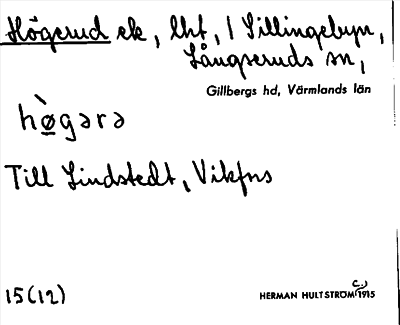 Högerud ek, lht, / Sillingebyn,
Långseruds sn,
Gillbergs hd, Värmlands län
hø̀gərə
Till Lindstedt, Vikfns
15(12)
HERMAN HULTSTRÖM C:) 1915